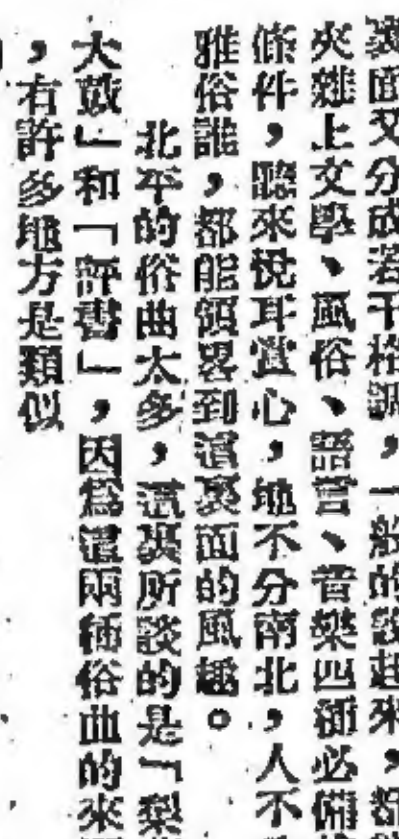 裏面又分成若干格調，一般的說起來，都
夾雜上文學、風俗、語言、音樂四種必備
條件，聽來悅耳賞心，地不分南北，人不
雅俗誰，都能領畧到這裏面的風趣。
北平的俗曲太多，這裏所談的是「梨
大鼓」和「評書」，因為這兩種俗曲的來
，有許多地方是類似